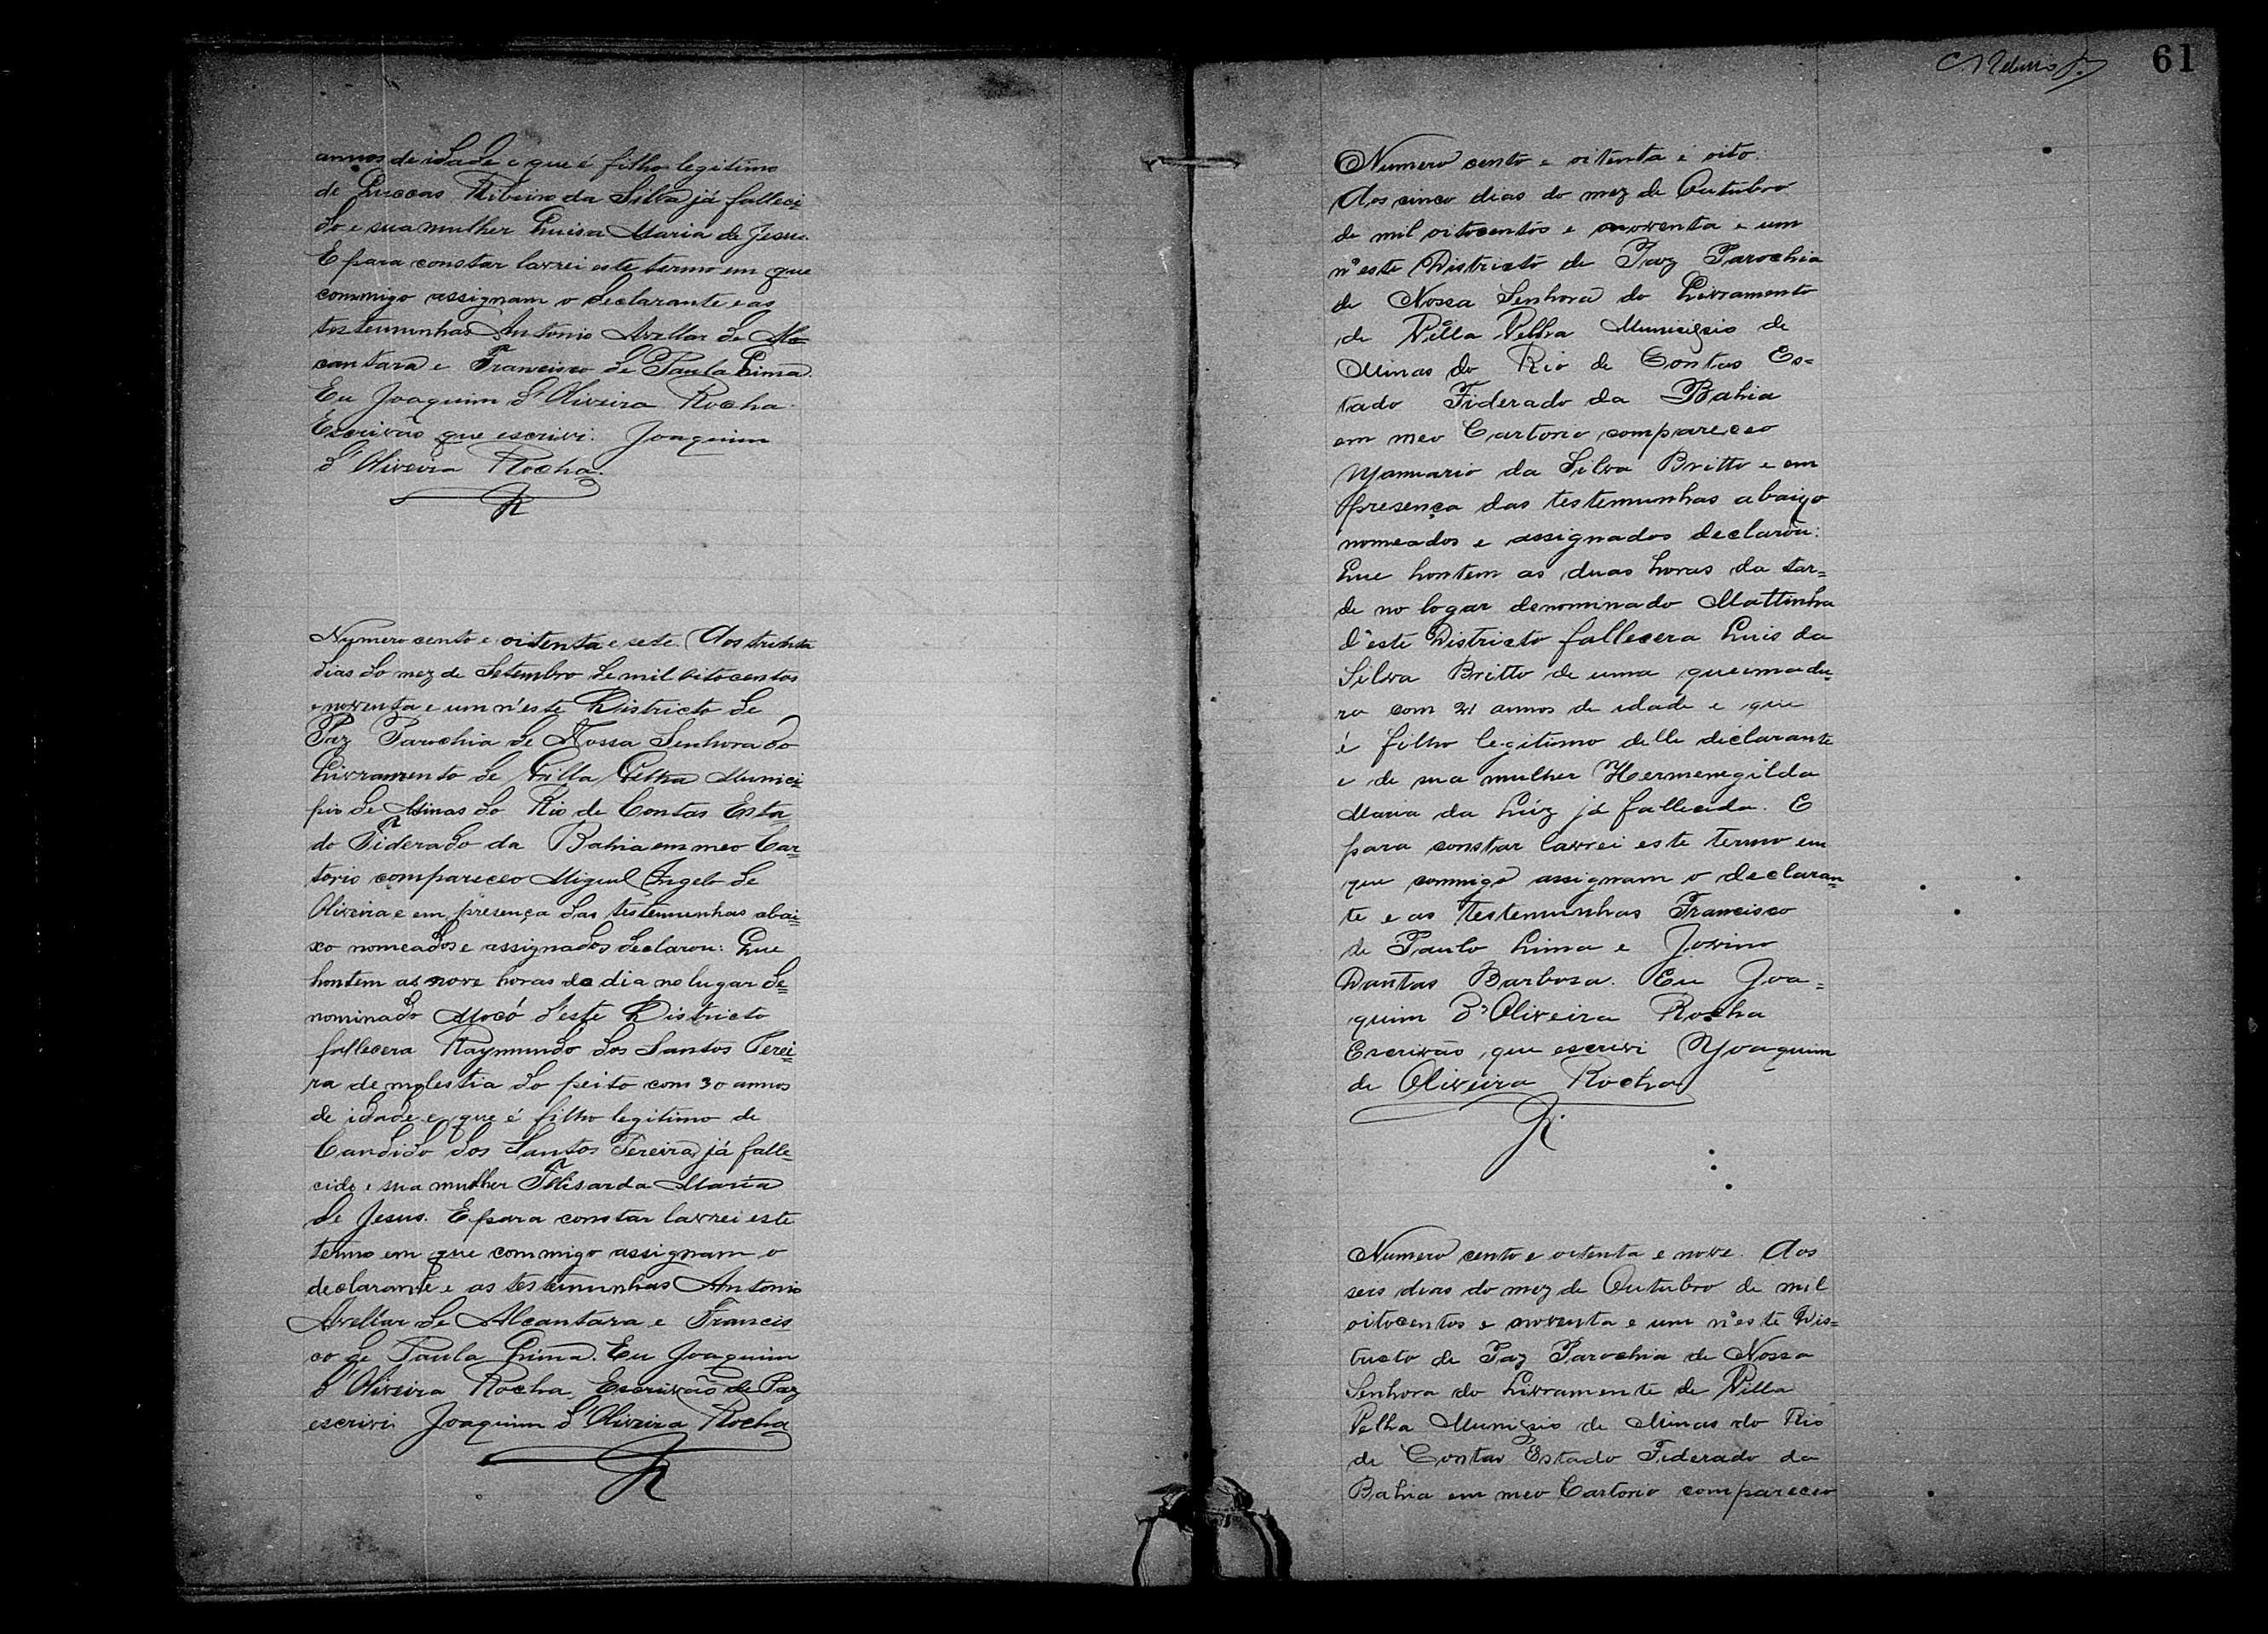 annos de idade e que é filho legitimo
de Luccas Ribeiro da Silva já falleci=
do e sua mulher Luisa Maria de Jesus.
E para constar lavrei este termo em que
commigo assignam o declarante e as
testemunhas Antonio Avellar de Al=
cantara e Francisco de Paula Lima.
Eu Joaquim d'Oliveira Rocha
Escrivão que escrivi. Joaquim
d'Oliveira Rocha.
R
Numero cento e oitenta e sete. Aos trinta
dias do mez de Setembro de mil oitocentos
e noventa e um n'este Districto de
Paz Parochia de Nossa Senhora do
Livramento de Villa Velha Munici=
pio de Minas do Rio de Contas Esta=
do Fiderado da Bahia em meo Car=
torio compareceo Miguel Angelo de
Oliveira e em presença das testemunhas abai=
xo nomeados e assignados declarou: Que
hontem as nove horas do dia no lugar de=
nominado Mocó d'este Districto
fallecera Raymundo dos Santos Perei=
ra de molestia do peito com 30 annos
de idade e que é filho legitimo de
Candido dos Santos Pereira já falle=
cido e sua mulher Felisarda Maria
de Jesus. E para constar lavrei este
termo em que commigo assignam o
declarante e as testemunhas Antonio
Avellar de Alcantara e Francis
co de Paula Lima. Eu Joaquim
d'Oliveira Rocha, Escrivão de Paz
escrivi Joaquim d'Oliveira Rocha
R
61
Numero cento e oitenta e oito.
Aos cinco dias do mez de Outubro
de mil oitocentos e noventa e um
n'este Districto de Paz Parochia
de Nossa Senhora do Livramento
de Villa Velha Municipio de
Minas do Rio de Contas Es=
tado Fiderado da Bahia
em meo Cartorio compareceo
Januario da Silva Britto e em
presença das testemunhas abaixo
nomeados e assignados declarou:
Que hontem as duas horas da tar=
de no logar denominado Mattinha
d'este Districto fallecera Luis da
Silva Britto de uma queimadu=
ra com 21 annos de idade e que
é filho legitimo delle declarante
e de sua mulher Hermenegilda
Maria da Luz já fallecida. E
para constar lavrei este termo em
que commigo assignam o declaran=
te e as testemunhas Francisco
de Paulo Lima e Jovino
Dantas Barbosa. Eu Joa=
quim d'Oliveira Rocha
Escrivão, que escrivi Joaquim
de Oliveira Rocha
R.
Numero cento e oitenta e nove. Aos
seis dias do mez de Outubro de mil
oitocentos e noventa e um n'este Dis=
tricto de Paz Parochia de Nossa
Senhora do Livramento de Villa
Velha Municipio de Minas do Rio
de Contas Estado Fiderado da
Bahia em meo Cartorio compareceo